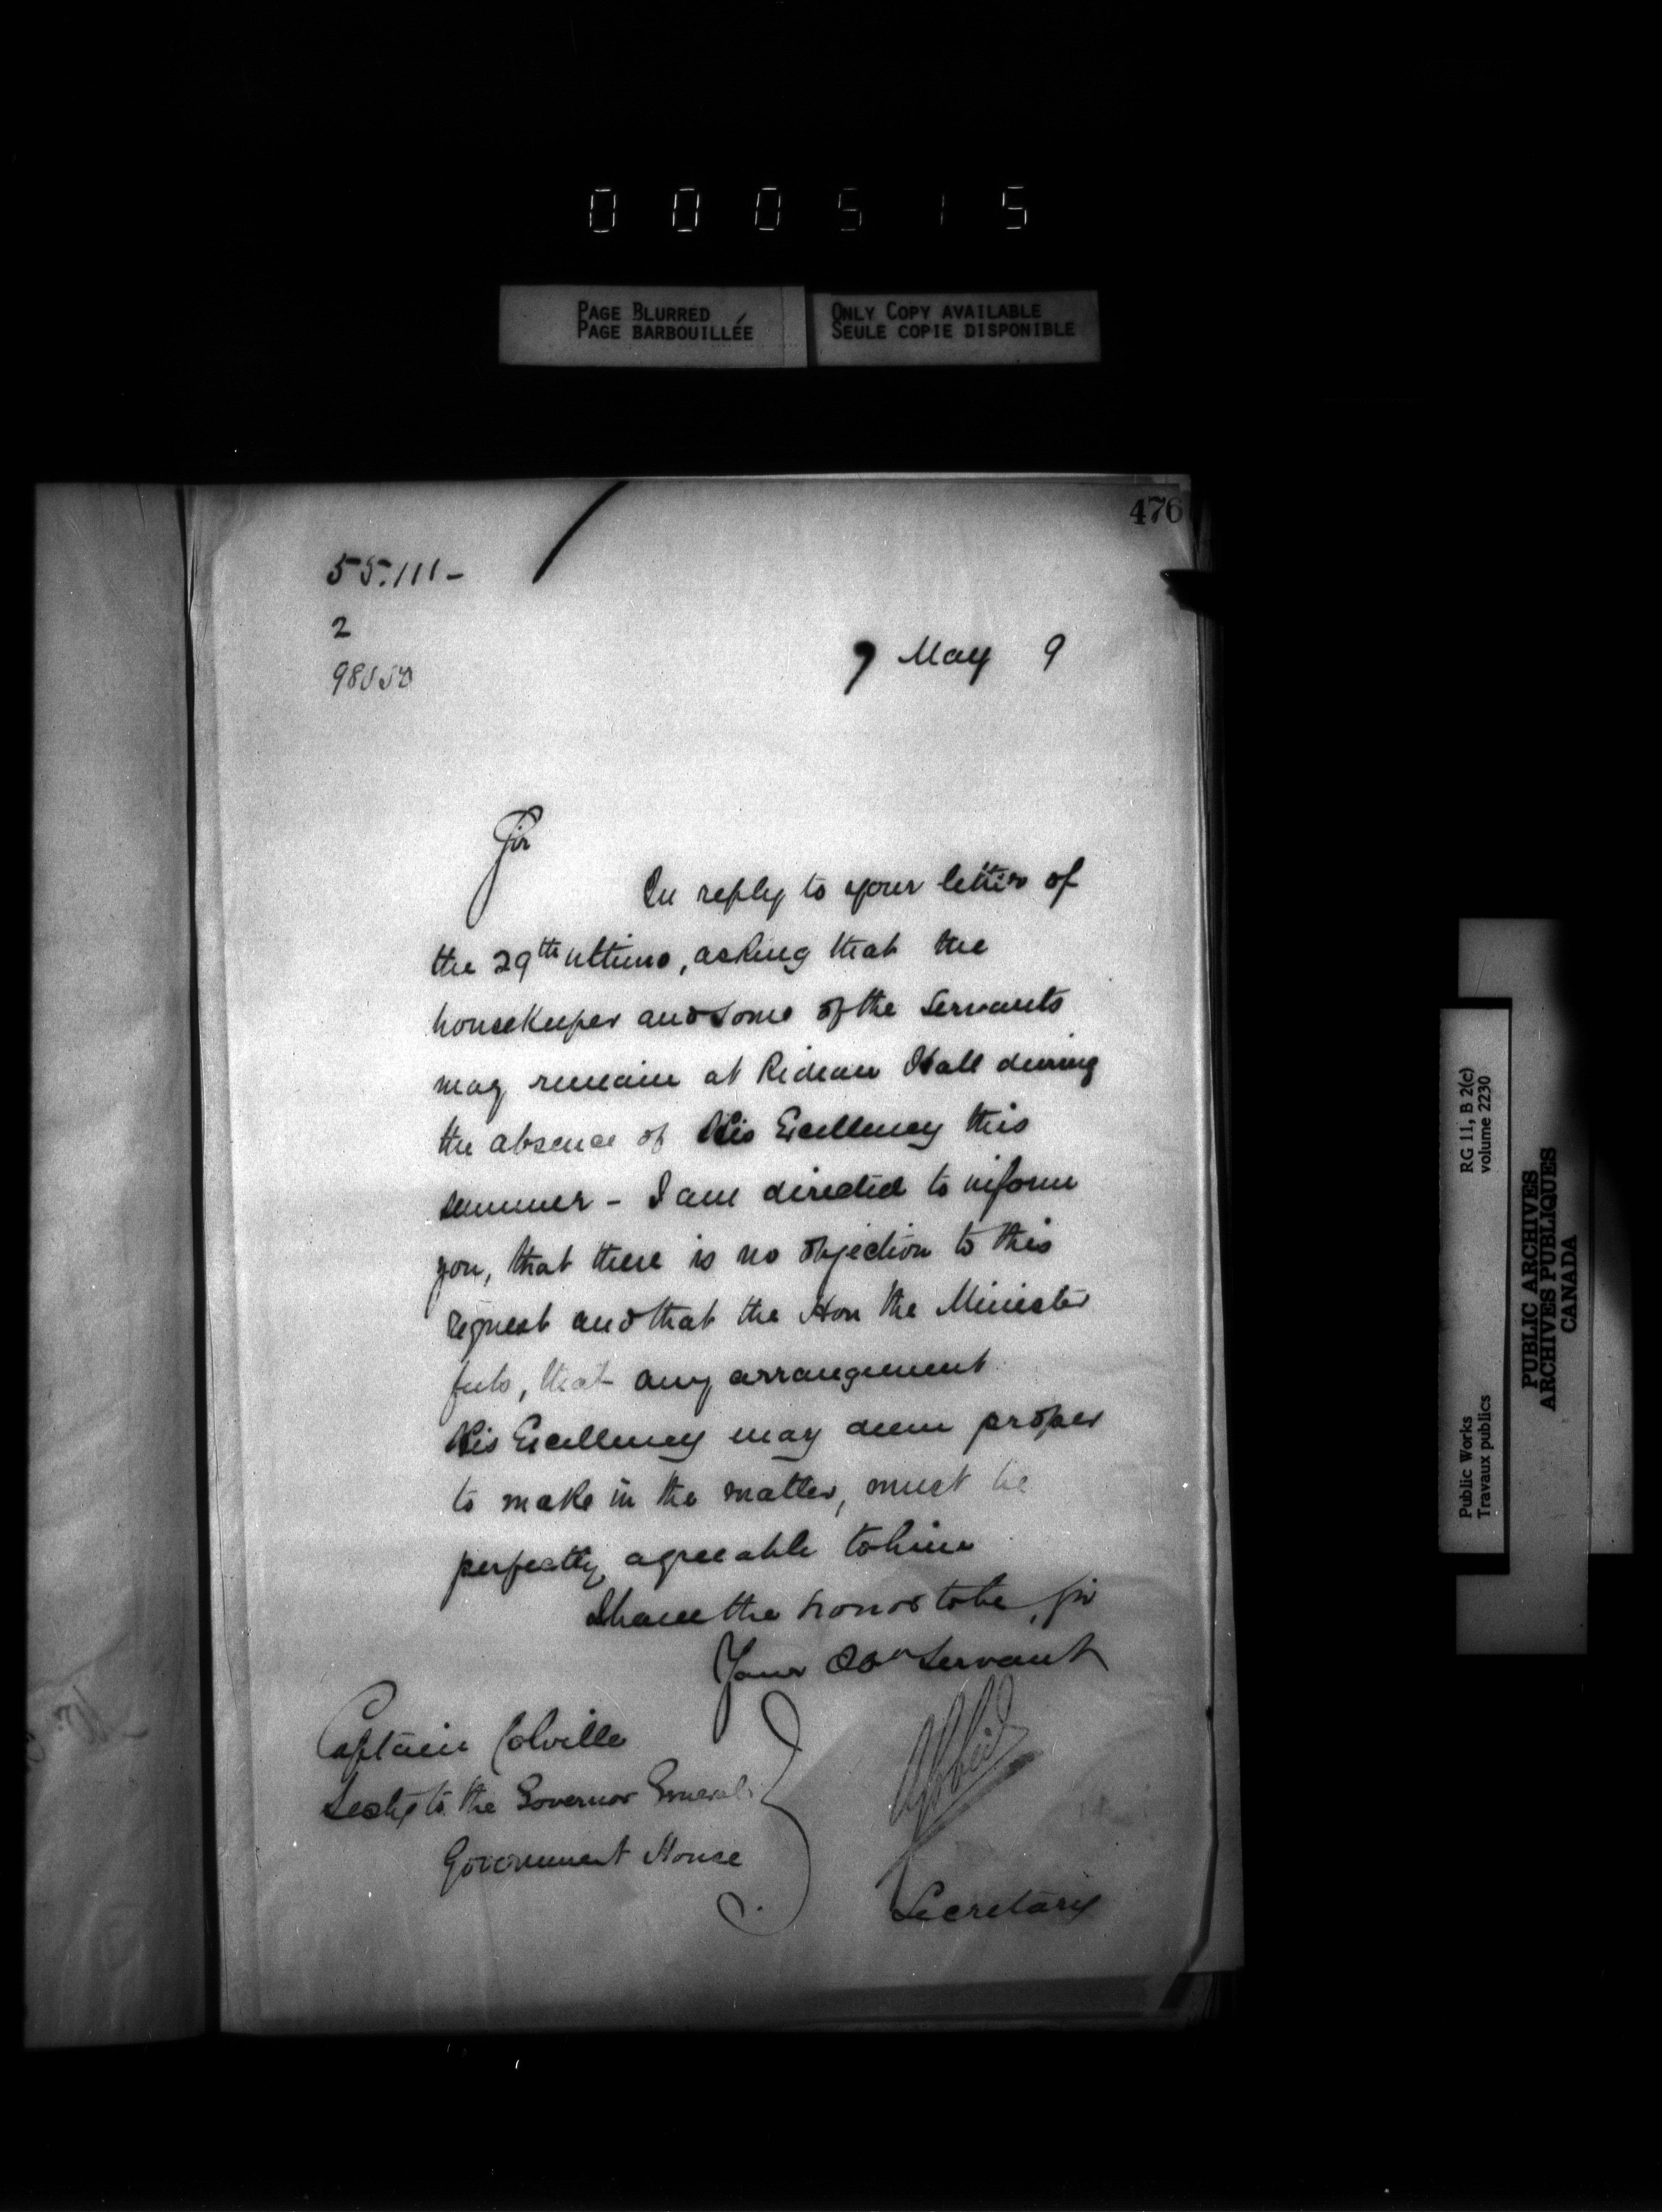 0 0 0 5 1 5
PAGE BLURRED
PAGE BARBOUILLÉE
ONLY COPY AVAILABLE
SEULE COPIE DISPONIBLE
476
55.111-
2
7 May 9
Sir
In reply to your letter of
the 29th ultimo, asking that the
housekeeper and some of the Servants
may remain at Rideau Hall during
the absence of His Excellency this
summer - I am directed to inform
you, that there is no objection to this
request and that the Hon the Minister
feels, that any arrangement
His Excellency may deem proper
to make in the matter, must be
perfectly agreeable to him
I have the honor to be, Sir
Your Obt Servant
Captain Colville
Secty to the Governor General
Government House
Secretary
Public Works
Travaux publics
RG 11, B 2(c)
volume 2230
PUBLIC ARCHIVES
ARCHIVES PUBLIQUES
CANADA